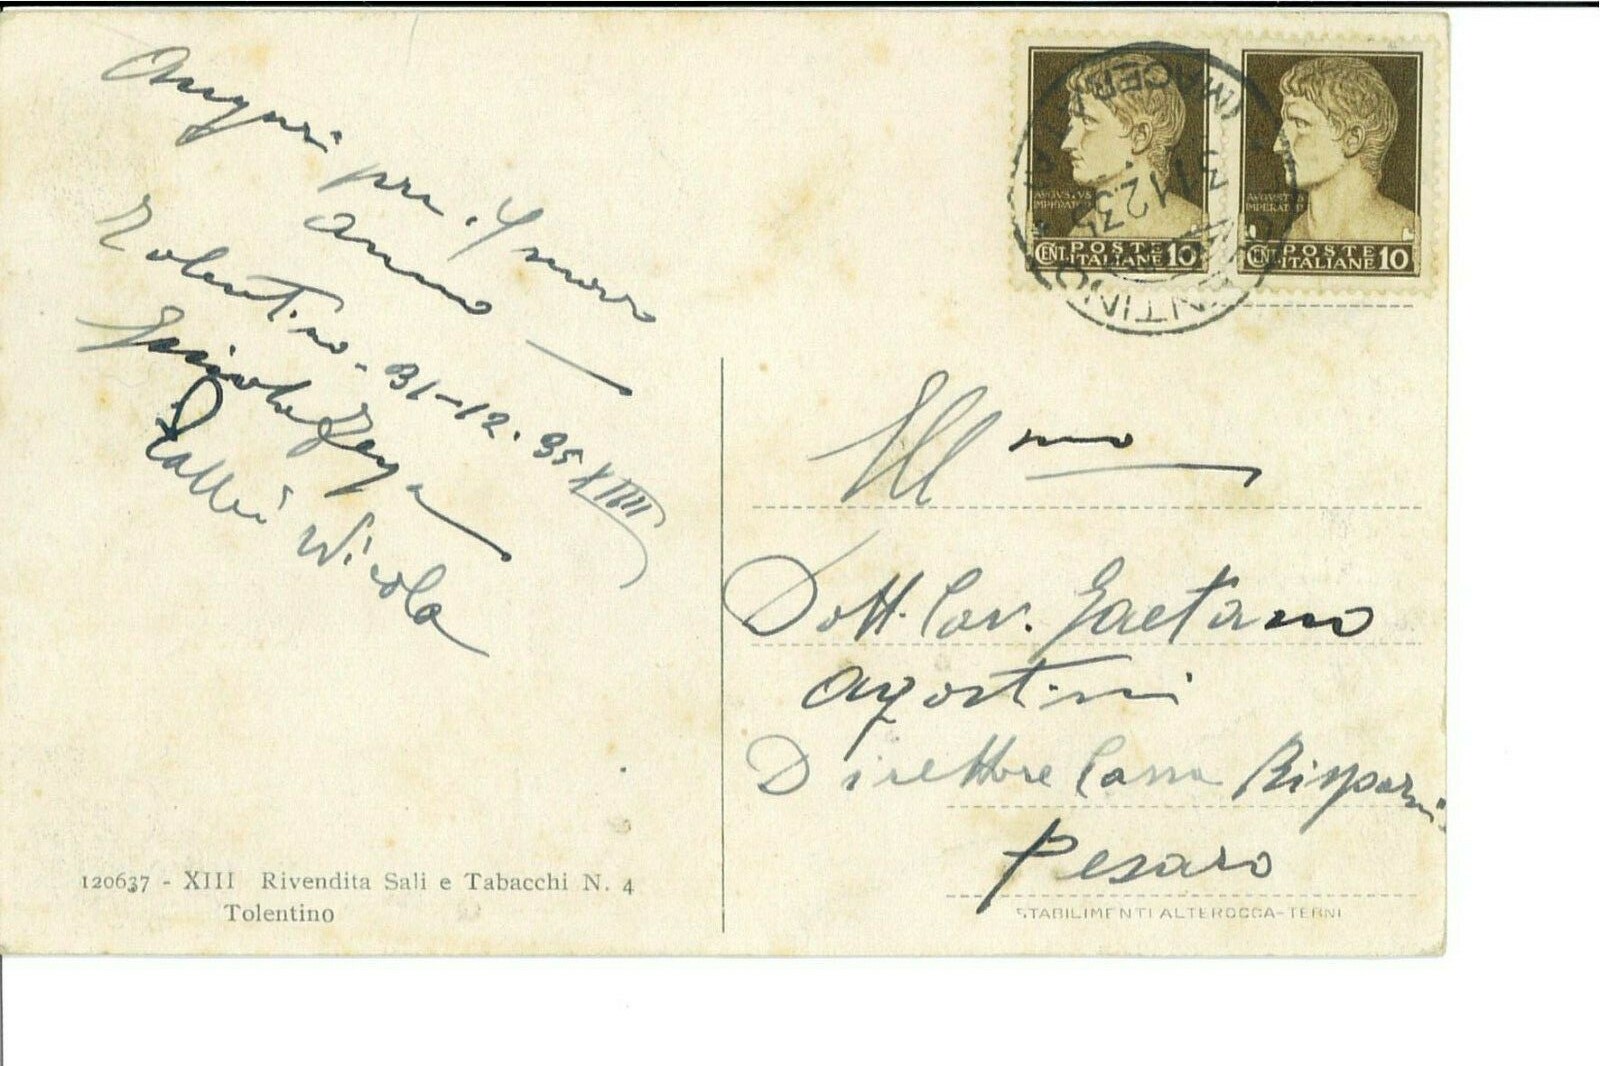 Auguri per il nuovo
anno
Tolentino - 31-12. 35 XIIII
Nicola
AVGVSTVS
IMPERAT
CENT. POSTE ITALIANE 10
AVGVSTVS
IMPERAT
CENT. POSTE ITALIANE 10
TOLENTINO
12.35
MACERATA
Ill mo
Dott. Cav. Gaetano
Agostini
Direttore Cassa Risparmi
Pesaro
120637 - XIII Rivendita Sali e Tabacchi N. 4
Tolentino
STABILIMENTI ALTEROCCA-TERNI